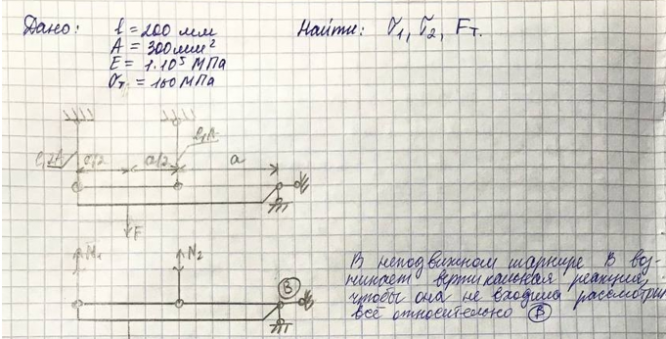 Дано: l = 200 мм
Найти: σ₁, σ₂, Fт.
A = 300 мм²
E = 1·10⁵ МПа
σт = 160 МПа
l, 2A
a/2
a/2
l, A
a
F
N₁
N₂
B
В неподвижном шарнире В воз-
никает вертикальная реакция,
чтобы она не входила рассмотрим
всё относительно B